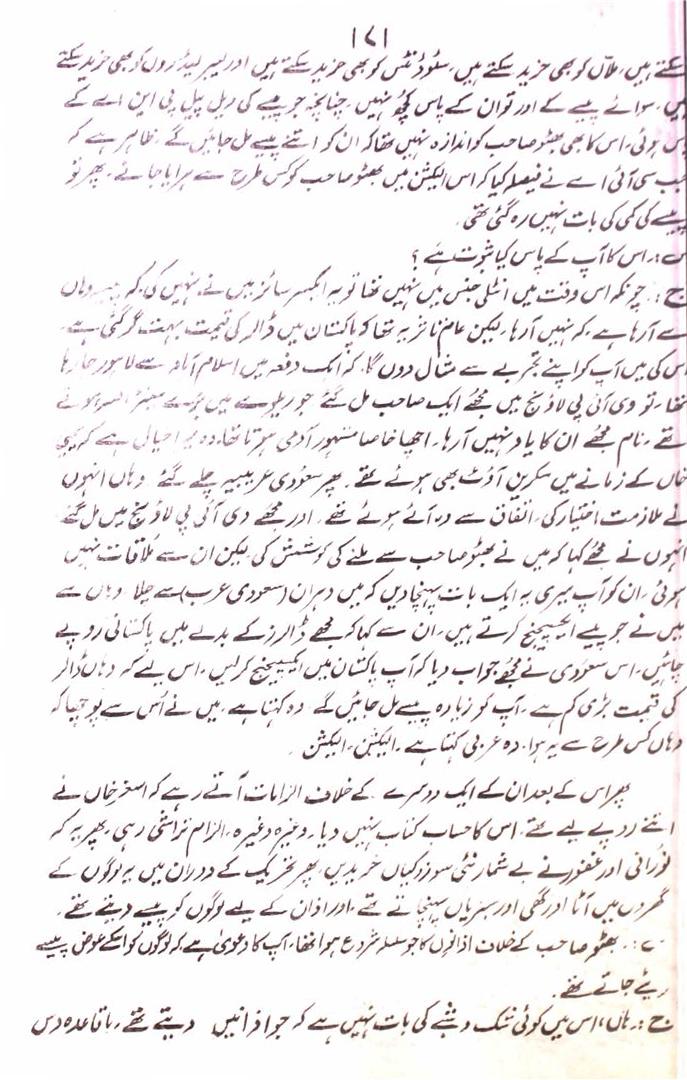 ۱۷۱
سکتے ہیں، ملّاں کو بھی خرید سکتے ہیں، سٹوڈنٹس کو بھی خرید سکتے ہیں اور لیبر لیڈروں کو بھی خرید سکتے
ہیں، سوائے پیسے کے اور تو ان کے پاس کچھ نہیں۔ چنانچہ جو پیسے کی ریل پیل پی این اے کے
پاس ہوئی، اس کا بھی بھٹو صاحب کو اندازہ نہیں تھا کہ ان کو اتنے پیسے مل جائیں گے۔ ظاہر ہے کہ
جب سی آئی اے نے فیصلہ کیا کہ اس الیکشن میں بھٹو صاحب کو کس طرح سے ہرایا جائے۔ پھر تو
پیسے کی کمی کی بات نہیں رہ گئی تھی۔
س:۔ اس کا آپ کے پاس کیا ثبوت ہے؟
ج:۔ چونکہ اس وقت میں انٹلی جنس میں نہیں تھا تو یہ ایکسرسائز میں نے نہیں کی کہ پیسہ وہاں
سے آرہا ہے کہ نہیں آرہا۔ لیکن عام تاثر یہ تھا کہ پاکستان میں ڈالر کی قیمت بہت گر گئی ہے۔
اس کی میں آپ کو اپنے تجربے سے مثال دوں گا، کہ ایک دفعہ میں اسلام آباد سے لاہور جارہا
تھا، تو وی آئی پی لاؤنج میں مجھے ایک صاحب مل گئے جو ریلوے میں بڑے سینئر افسر ہوتے
تھے، نام مجھے ان کا یاد نہیں آرہا۔ اچھا خاصا مشہور آدمی ہوتا تھا، وہ میرا خیال ہے کہ یحییٰ
خاں کے زمانے میں سکرین آؤٹ بھی ہوئے تھے۔ پھر سعودی عریبیہ چلے گئے وہاں انہوں
نے ملازمت اختیار کی۔ اتفاق سے وہ آئے ہوئے تھے۔ اور مجھے وی آئی پی لاؤنج میں مل گئے،
انہوں نے مجھے کہا کہ میں نے بھٹو صاحب سے ملنے کی کوشش کی لیکن ان سے ملاقات نہیں
ہوئی۔ ان کو آپ میری یہ ایک بات پہنچا دیں کہ میں دہران (سعودی عرب) سے چلا وہاں سے
میں نے جو پیسے ایکسچینج کرتے ہیں، ان سے کہا کہ مجھے ڈالرز کے بدلے میں پاکستانی روپے
چاہئیں، اس سعودی نے مجھے جواب دیا کہ آپ پاکستان میں ایکسچینج کرلیں، اس لیے کہ وہاں ڈالر
کی قیمت بڑی کم ہے۔ آپ کو زیادہ پیسے مل جائیں گے۔ وہ کہتا ہے، میں نے اُس سے پوچھا کہ
وہاں کس طرح سے یہ ہوا، وہ عربی کہتا ہے۔ الیکشن، الیکشن۔
پھر اس کے بعد ان کے ایک دوسرے کے خلاف الزامات آتے رہے کہ اصغر خاں نے
اتنے روپے لیے تھے، اس کا حساب کتاب نہیں دیا۔ وغیرہ وغیرہ۔ الزام تراشی رہی، پھر یہ کہ
نورانی اور غفور نے بے شمار نئی سوزوکیاں خریدیں، پھر تحریک کے دوران میں یہ لوگوں کے
گھروں میں آٹا اور گھی اور سبزیاں پہنچاتے تھے۔ اور اذان کے لیے لوگوں کو پیسے دیتے تھے۔
س:۔ بھٹو صاحب کے خلاف اذانوں کا جو سلسلہ شروع ہوا تھا، آپ کا دعویٰ ہے کہ لوگوں کو اسکے عوض پیسے
دیئے جاتے تھے۔
ج:۔ ہاں، اس میں کوئی شک و شبے کی بات نہیں ہے کہ جو اذانیں دیتے تھے۔ باقاعدہ دس